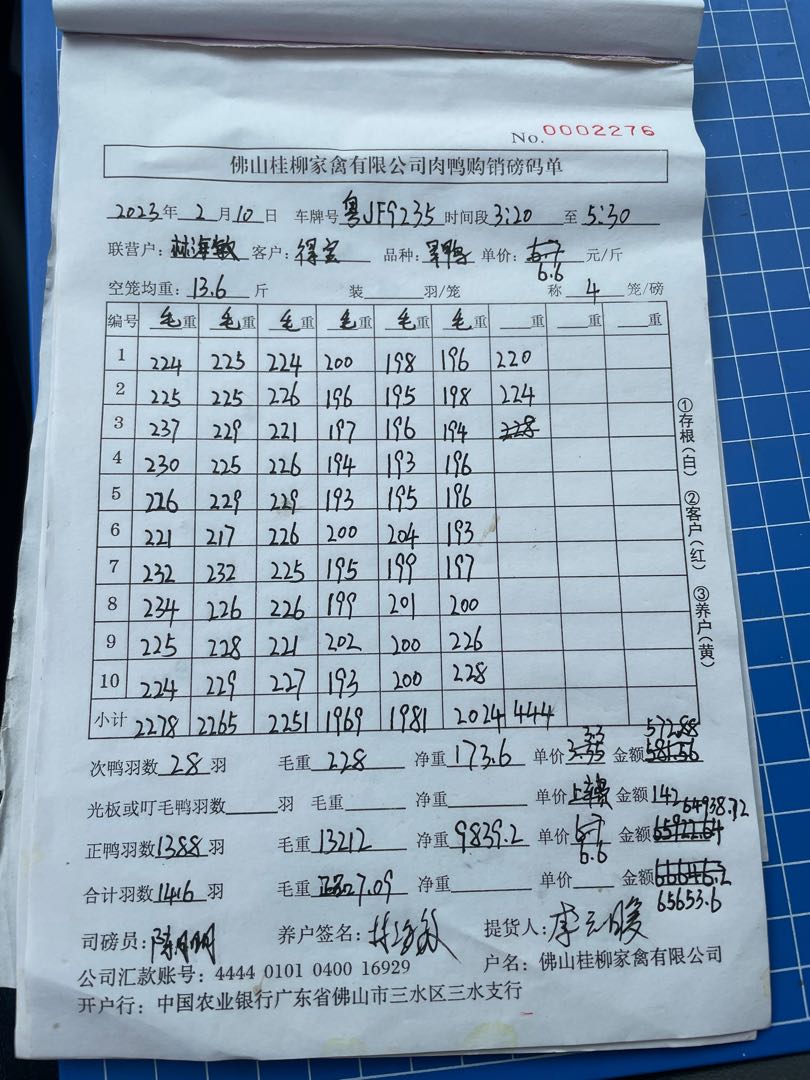 No. 0002276
佛山桂柳家禽有限公司肉鸭购销磅码单
2023年 2月10日 车牌号 粤JF9235 时间段 3:20 至 5:30
联营户：林海敏 客户：得宝 品种：单价：6.7 元/斤
6.6
空笼均重：13.6 斤 装 羽/笼 称 4 笼/磅
编号 毛重 毛重 毛重 毛重 毛重 毛重 重 重 重
1 224 225 224 200 198 196 220
2 225 225 226 196 195 198 224
3 237 229 221 197 196 194 228
4 230 225 226 194 193 196
5 226 229 229 193 195 196
6 221 217 226 200 204 193
7 232 232 225 195 199 197
8 234 226 226 199 201 200
9 225 228 221 202 200 226
10 224 229 227 193 200 228
小计 2278 2265 2251 1969 1981 2024 444
①存根(白) ②客户(红) ③养户(黄)
3.3 572.88
次鸭羽数 28 羽 毛重 228 净重 173.6 单价 3.35 金额 581.56
光板或叮毛鸭羽数 羽 毛重 净重 单价 上车费 金额 142
64938.72
正鸭羽数 1388 羽 毛重 13212 净重 9839.2 单价 6.7 金额 65922.64
6.6
合计羽数 1416 羽 毛重 7.09 净重 单价 金额 66646.2
65653.6
司磅员： 养户签名：林海敏 提货人：
公司汇款账号：4444 0101 0400 16929 户名：佛山桂柳家禽有限公司
开户行：中国农业银行广东省佛山市三水区三水支行